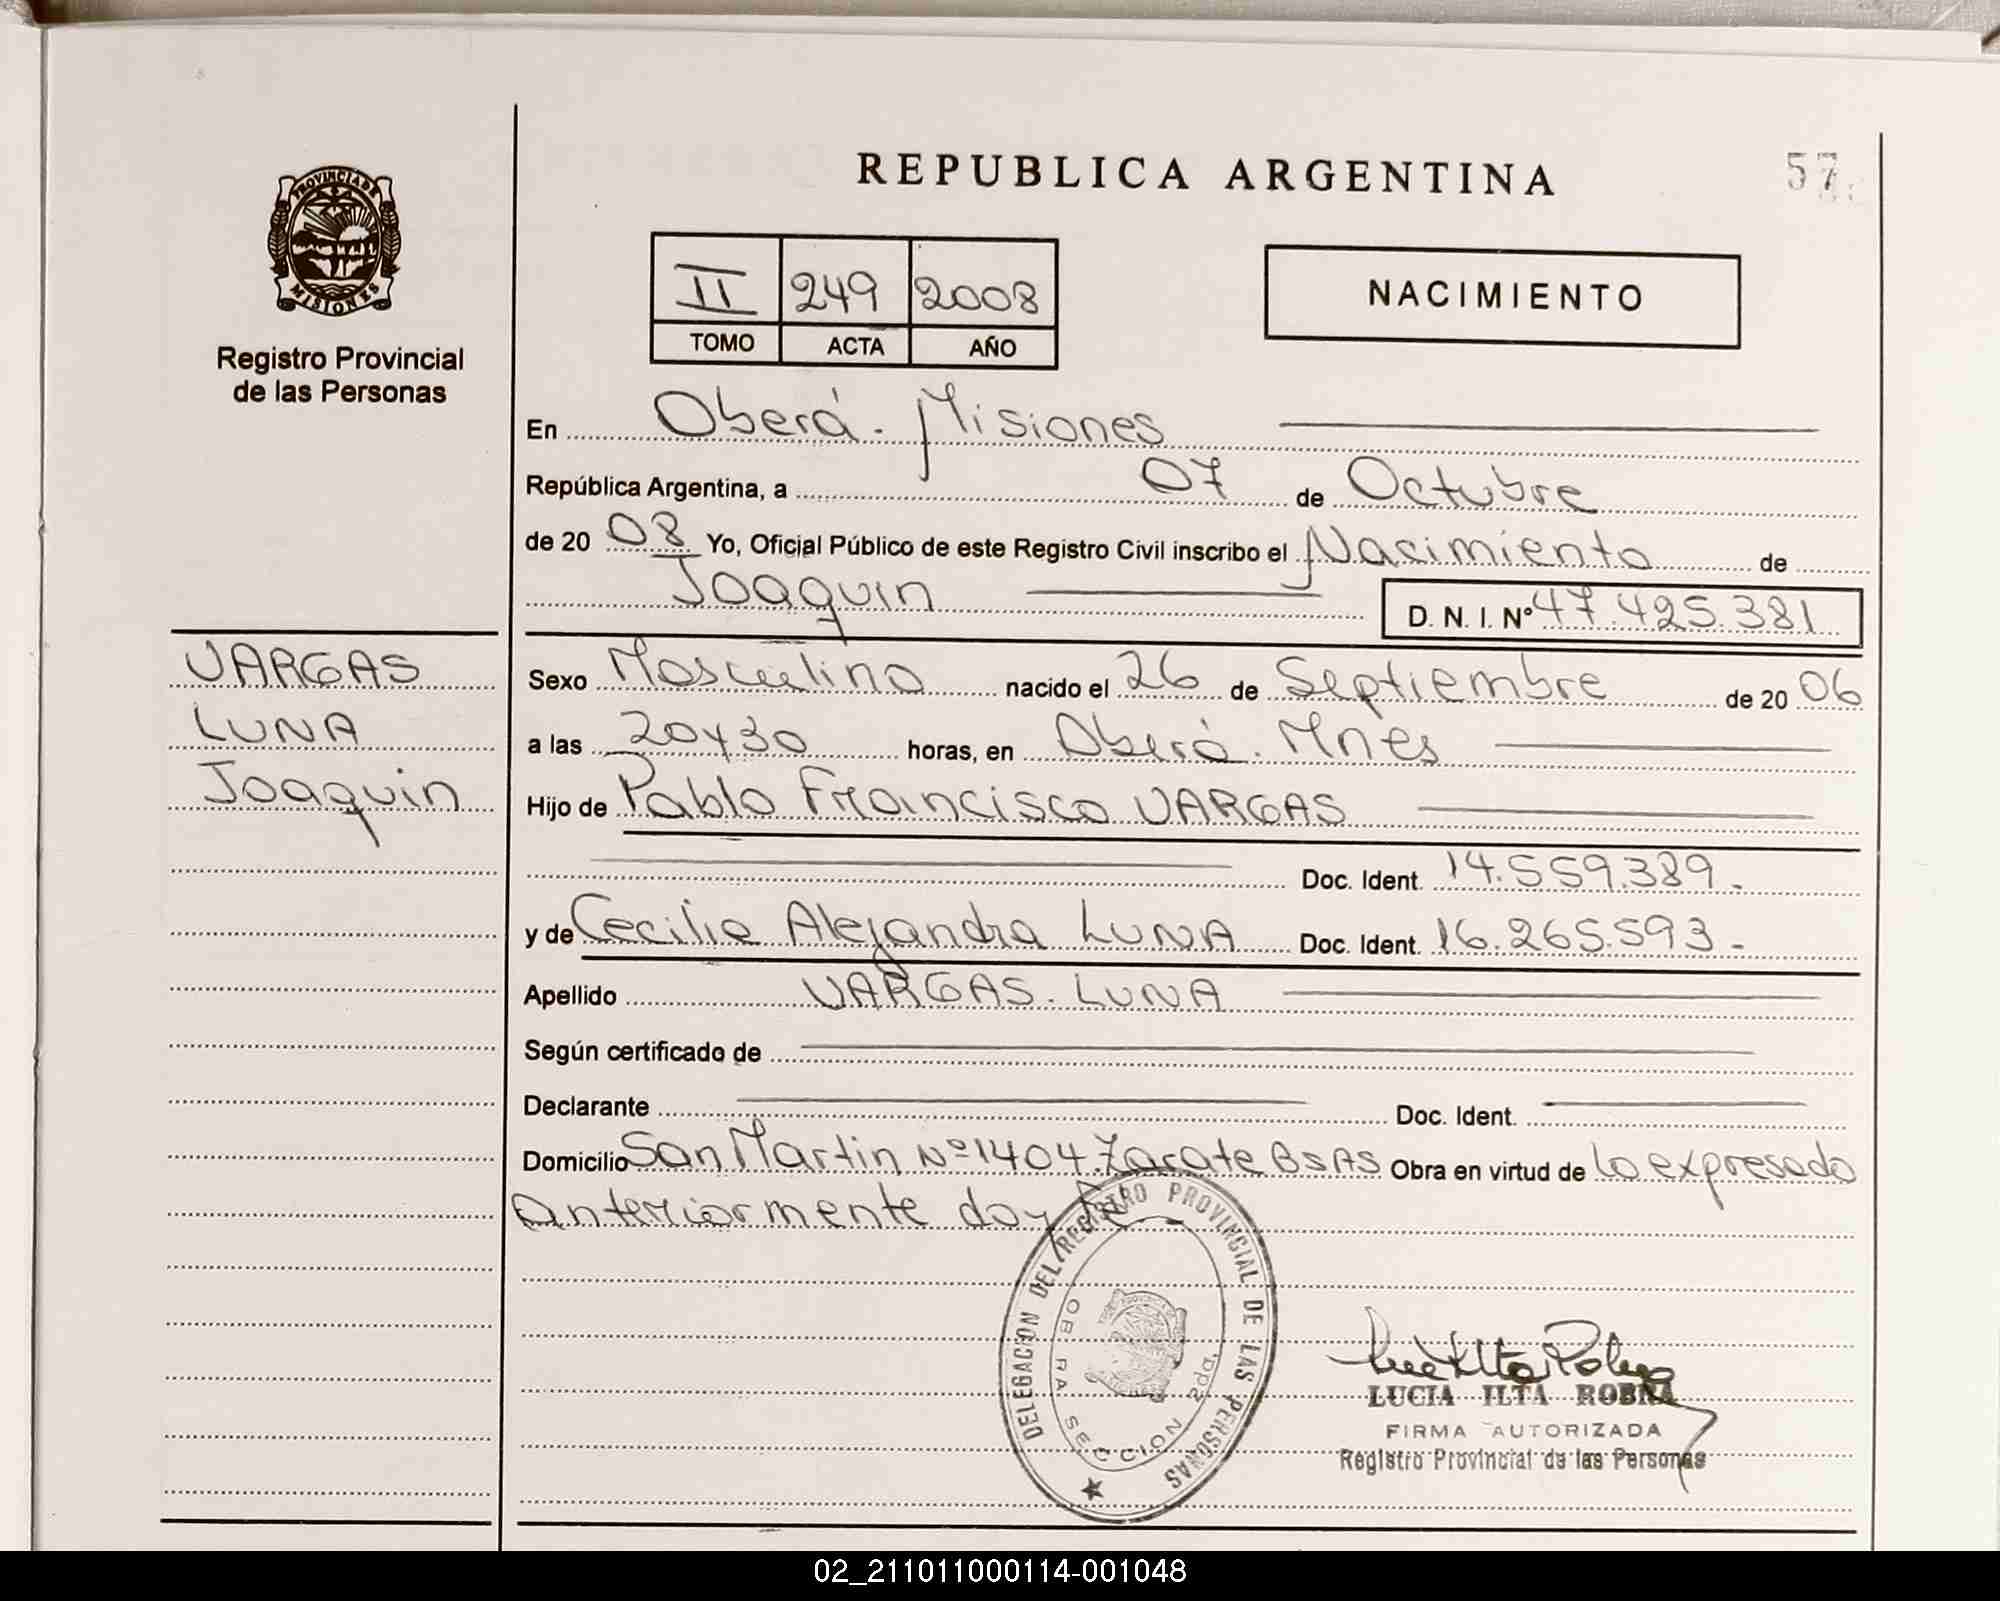 REPUBLICA ARGENTINA
57
PROVINCIA DE
MISIONES
Registro Provincial
de las Personas
II 249 2008
TOMO ACTA AÑO
NACIMIENTO
En Oberá. Misiones
República Argentina, a 07 de Octubre
de 20 08 Yo, Oficial Público de este Registro Civil inscribo el Nacimiento de
Joaquin D. N. I. Nº 47.425.381
VARGAS
LUNA
Joaquin
Sexo Masculino nacido el 26 de Septiembre de 20 06
a las 20y30 horas, en Oberá. Mnes
Hijo de Pablo Francisco VARGAS
Doc. Ident. 14.559.389.
y de Cecilia Alejandra LUNA Doc. Ident. 16.265.593-
Apellido VARGAS. LUNA
Según certificado de
Declarante Doc. Ident.
Domicilio San Martin Nº 1404. Zarate BSAS Obra en virtud de lo expresado
anteriormente doy fe
DELEGACION DEL REGISTRO PROVINCIAL DE LAS PERSONAS
OB RA SECCION 2da.
LUCIA ILTA ROBNA
FIRMA AUTORIZADA
Registro Provincial de las Personas
02_211011000114-001048